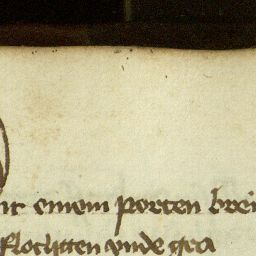 nit einem porten brei
flochtten vnde gra